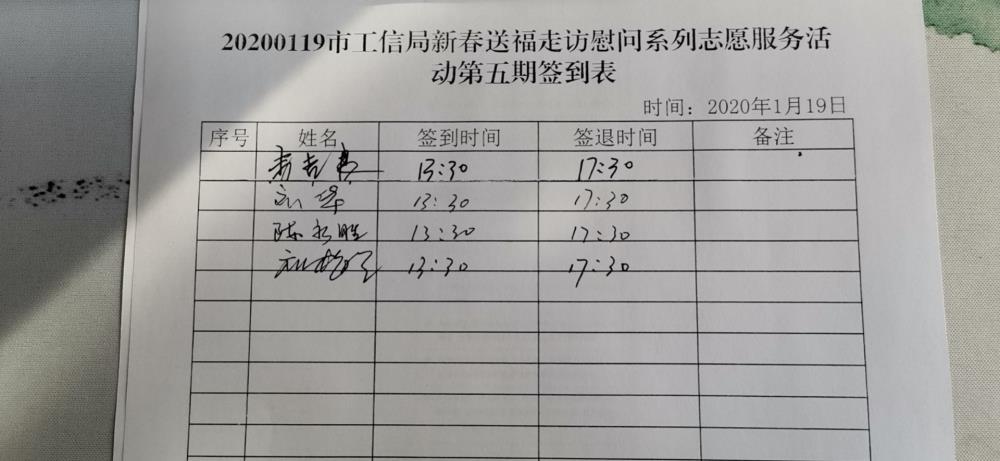 20200119市工信局新春送福走访慰问系列志愿服务活
动第五期签到表
时间：2020年1月19日
序号 姓名 签到时间 签退时间 备注
13:30 17:30
刘华 13:30 17:30
陈永胜 13:30 17:30
13:30 17:30